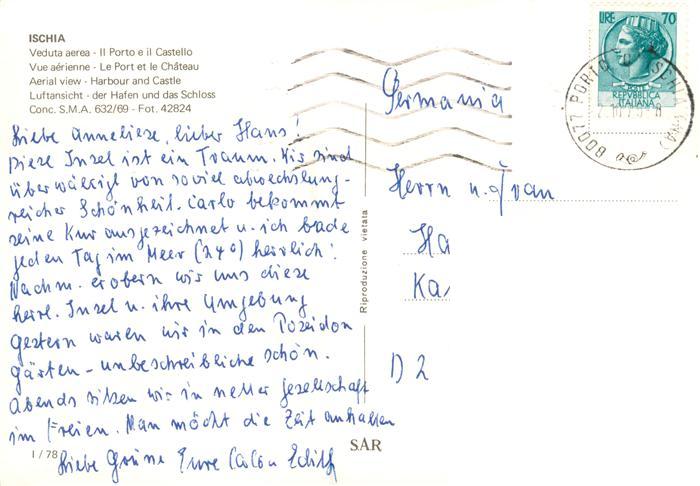 ISCHIA
Veduta aerea - Il Porto e il Castello
Vue aérienne - Le Port et le Château
Aerial view - Harbour and Castle
Luftansicht - der Hafen und das Schloss
Conc. S.M.A. 632/69 - Fot. 42824
Liebe Anneliese, lieber Hans!
Diese Insel ist ein Traum. Wir sind
überwältigt von soviel abwechslung-
reicher Schönheit. Carlo bekommt
seine Kur ausgezeichnet u. ich bade
jeden Tag im Meer (24°) herrlich!
Nachm. erobern wir uns diese
herrl. Insel u. ihre Umgebung
gestern waren wir in den Poseidon
gärten - unbeschreiblich schön.
Abends sitzen wir in netter Gesellschaft
im Freien. Man möcht die Zeit anhalten
Liebe Grüsse Eure Carlo u Edith
I / 78
SAR
Riproduzione vietata
LIRE 70
REPVBBLICA
ITALIANA
80077 PORTO D'ISCHIA (NA)
Germania
Herrn u. Frau
Ha
Ka
D 2